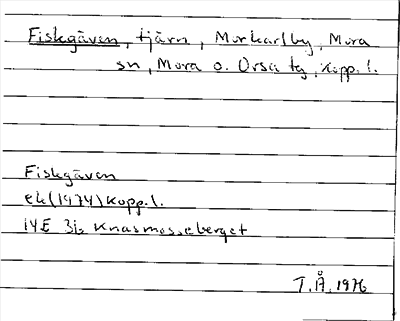 Fiskgåven, tjärn, Morkarlby, Mora
sn, Mora o. Orsa tg, Kopp. l.
Fiskgåven
ek (1974) Kopp. l.
14E 3b Knasmosseberget
T.Å. 1976